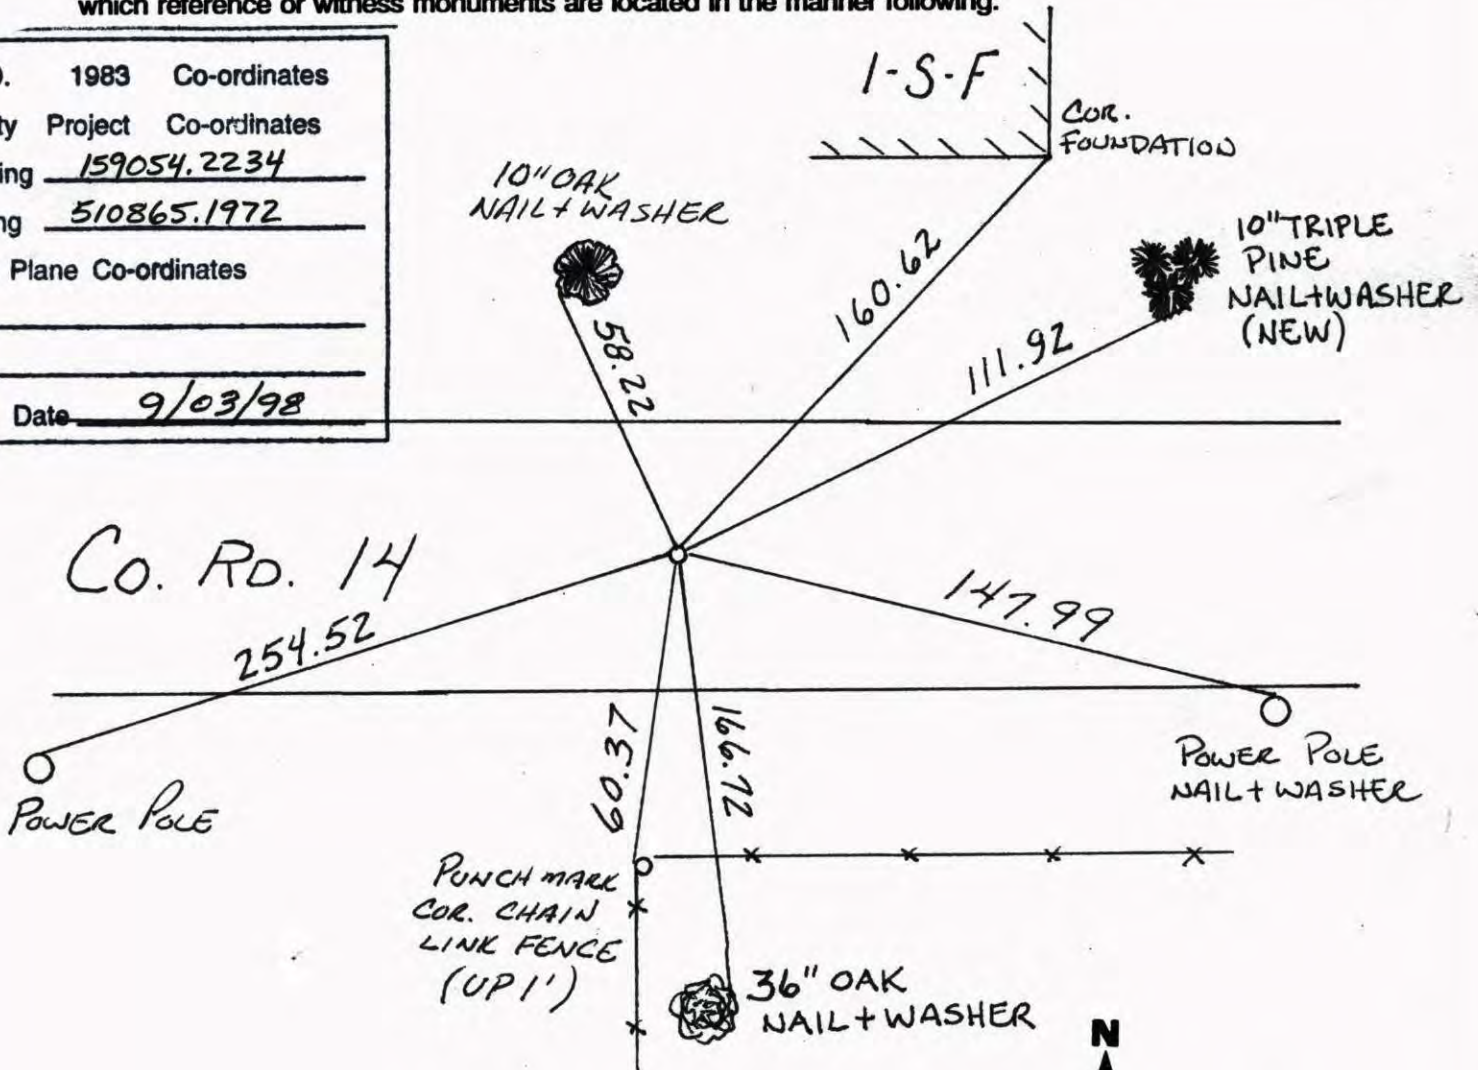 which reference or witness monuments are located in the manner following:
1983 Co-ordinates
Project Co-ordinates
159054.2234
510865.1972
Plane Co-ordinates
Date 9/03/98
1-S-F
COR.
FOUNDATION
10" OAK
NAIL + WASHER
10" TRIPLE
PINE
NAIL+WASHER
(NEW)
58.22
160.62
111.92
Co. RD. 14
254.52
147.99
60.37
166.72
POWER POLE
POWER POLE
NAIL + WASHER
PUNCH MARK
COR. CHAIN
LINK FENCE
(UP 1')
36" OAK
NAIL + WASHER
N